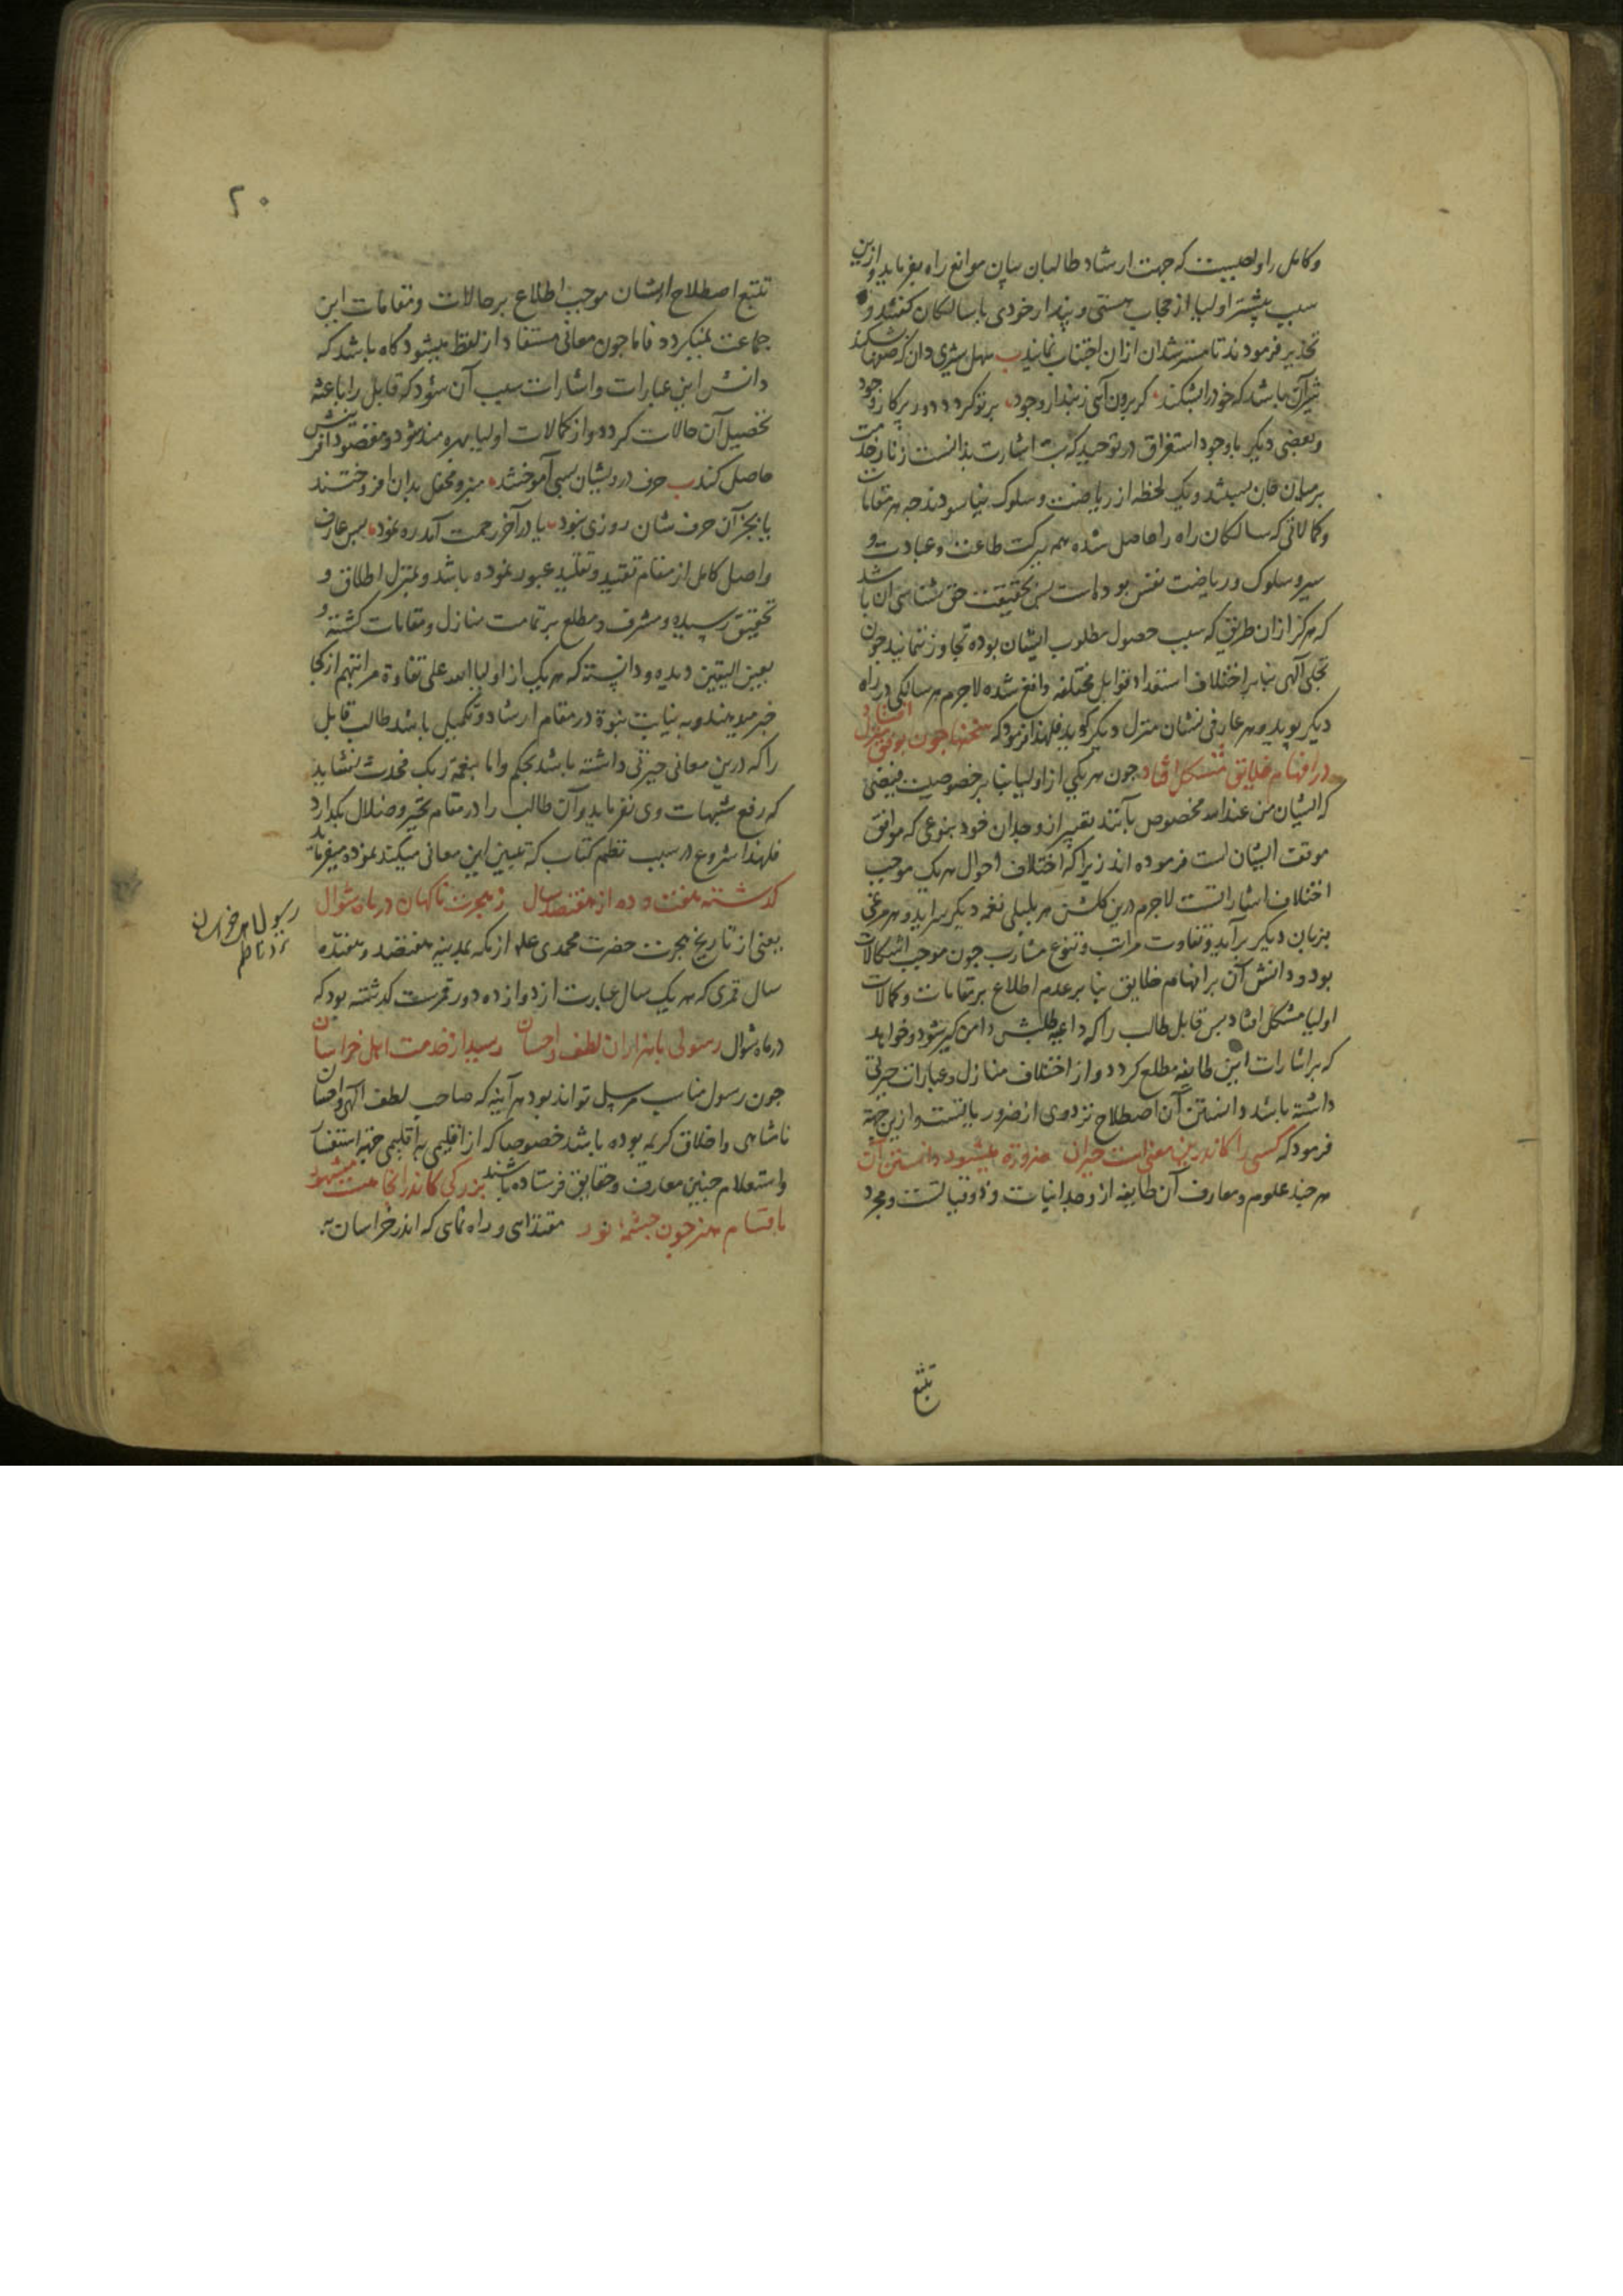 وکامل را واجبست که جهت ارشاد طالبان بیان موانع راه بفرماید و ازین
سبب بیشتر اولیا از حجاب هستی و پندار خودی با سالکان کفتند و
تحذیر فرمودند تا مسترشدان ازان اجتناب نمایند ب سهل شیری دان که صفها بشکند
شیر آن باشد که خود را بشکند کر برون آئی ز پندار وجود بر تو کردد دور پرکار وجود
و بعضی دیکر با وجود استغراق در توحید که بت اشارت بدانست زنار خدمت
بر میان جان ببستند و یک لحظه از ریاضت و سلوک نیاسودند چه هر مقامات
و کمالاتی که سالکان راه را حاصل شده همه ببرکت طاعت و عبادت و
سیر و سلوک و ریاضت نفس بوده است پس بحقیقت حق شناسی آن باشد
که هرکز ازان طریق که سبب حصول مطلوب ایشان بوده تجاوز ننمایند چون
تجلی آلهی بنابر اختلاف استعداد قوابل مختلفه واقع شده لاجرم هر سالکی در راه
دیکر پوید و هر عارفی نشان منزل دیکر کوید فلهذا فرمود که سخنها چون بوفق منزل افتاد
در افهام خلایق مشکل افتاد چون هر یکی از اولیا بنابر خصوصیت فیضی
که ایشان من عندالله مخصوص بآنند تعبیر از وجدان خود بنوعی که موافق
موقف ایشان است فرموده اند زیرا که اختلاف احوال هر یک موجب
اختلاف اشاراتست لاجرم درین کلشن هر بلبلی نغمه دیکر سراید و هر مرغی
بزبان دیکر برآید و تفاوت مراتب و تنوع مشارب چون موجب اشکالات
بود و دانش آن بر افهام خلایق بنابر عدم اطلاع بر مقامات و کمالات
اولیا مشکل افتاد پس قابل طالب را که داعیه طلبش دامن کیر شود و خواهد
که بر اشارات این طایفه مطلع کردد و از اختلاف منازل و عبارات حیرتی
داشته باشد دانستن آن اصطلاح نزد وی از ضرور یاتست و ازین جهة
فرمود که کسی را کاندرین معنی است حیران ضرورة میشود دانستن آن
هر چند علوم و معارف آن طایفه از وجدانیات و ذوقیاتست و مجرد
تتبع
۲۰
تتبع اصطلاح ایشان موجب اطلاع بر حالات و مقامات این
جماعت نمیکردد فاما چون معانی مستفاد از لفظ میشود کاه باشد که
دانش این عبارات و اشارات سبب آن شود که قابل را باعث
تحصیل آن حالات کردد و از کمالات اولیا بهره مند شود و مقصود آفرینش
حاصل کند ب حرف درویشان بسی آموختند منبر و محفل بدان افروختند
یا بجز آن حرف شان روزی نبود یا در آخر رحمت آمد ره نمود پس عارف
واصل کامل از مقام تقید و تقلید عبور نموده باشد و بمنزل اطلاق و
تحقیق رسیده و مشرف و مطلع بر تمامت منازل و مقامات کشته و
بعین الیقین دیده و دانسته که هر یک از اولیاء الله علی تفاوة مراتبهم از کجا
خبر میدهند و به نیابت نبوة در مقام ارشاد و تکمیل باشد طالب قابل
را که درین معانی حیرتی داشته باشد بحکم واما بنعمة ربک فحدث نشاید
که رفع شبهات وی نفرماید و آن طالب را در مقام تحیر و ضلال بکذارد
فلهذا شروع در سبب نظم کتاب که تبیین این معانی میکند نموده میفرماید
کذشته هفت و ده از هفتصد سال ز هجرت ناکهان در ماه شوال
یعنی از تاریخ هجرت حضرت محمدی علم از مکه بمدینه هفتصد و هفده
سال قمری که هر یک سال عبارت از دوازده دور قمرست کذشته بود که
در ماه شوال رسولی با هزاران لطف و احسان رسید از خدمت اهل خراسان
چون رسول مناسب مرسل تواند بود هر آینه که صاحب لطف آلهی و احسان
نا متناهی و اخلاق کریمه بوده باشد خصوصا که از اقلیمی به اقلیمی جهة استفسار
و استعلام چنین معارف و حقایق فرستاده باشند بزرکی کاندرانجا هست مشهور
باقسام هنر چون چشمهٔ نور مقتدای و راه نمای که اندر خراسان به
رسول اهل خراسان